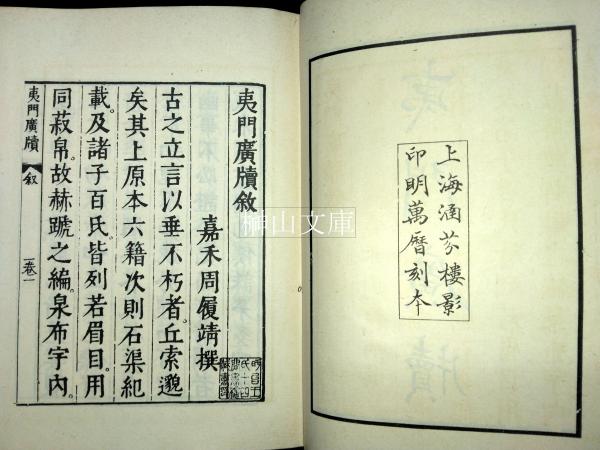 上海涵芬樓影
印明萬曆刻本
夷門廣牘敘
嘉禾周履靖撰
古之立言以垂不朽者。丘索邈
矣其上原本六籍次則石渠紀
載。及諸子百氏。皆列若眉目。用
同菽帛。故赫蹏之編。泉布宇內。
夷門廣牘
叙
卷一
榊山文庫